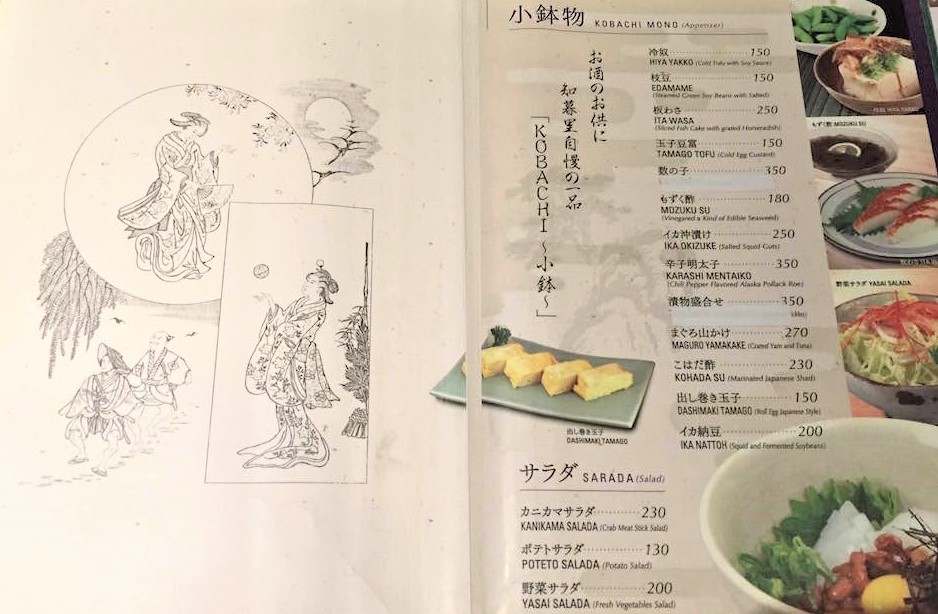 小鉢物 KOBACHI MONO (Appetizer)
お酒のお供に
知暮里自慢の一品
「KOBACHI～小鉢～」
冷奴 150
HIYA YAKKO (Cold Tofu with Soy Sauce)
枝豆 150
EDAMAME
(Steamed Green Soy Beans with Salted)
板わさ 250
ITA WASA
(Sliced Fish Cake with grated Horseradish)
玉子豆富 150
TAMAGO TOFU (Cold Egg Custard)
数の子 350
もずく酢 180
MOZUKU SU
(Vinegared a Kind of Edible Seaweed)
イカ沖漬け 250
IKA OKIZUKE (Salted Squid Guts)
辛子明太子 350
KARASHI MENTAIKO
(Chili Pepper Flavored Alaska Pollack Roe)
漬物盛合せ 350
まぐろ山かけ 270
MAGURO YAMAKAKE (Grated Yam and Tuna)
こはだ酢 230
KOHADA SU (Marinated Japanese Shad)
出し巻き玉子 150
DASHIMAKI TAMAGO (Roll Egg Japanese Style)
イカ納豆 200
IKA NATTOH (Squid and Fermented Soybeans)
出し巻き玉子
DASHIMAKI TAMAGO
サラダ SARADA (Salad)
カニカマサラダ 230
KANIKAMA SALADA (Crab Meat Stick Salad)
ポテトサラダ 130
POTETO SALADA (Potato Salad)
野菜サラダ 200
YASAI SALADA (Fresh Vegetables Salad)
冷奴 HIYA YAKKO
もずく酢 MOZUKU SU
野菜サラダ YASAI SALADA